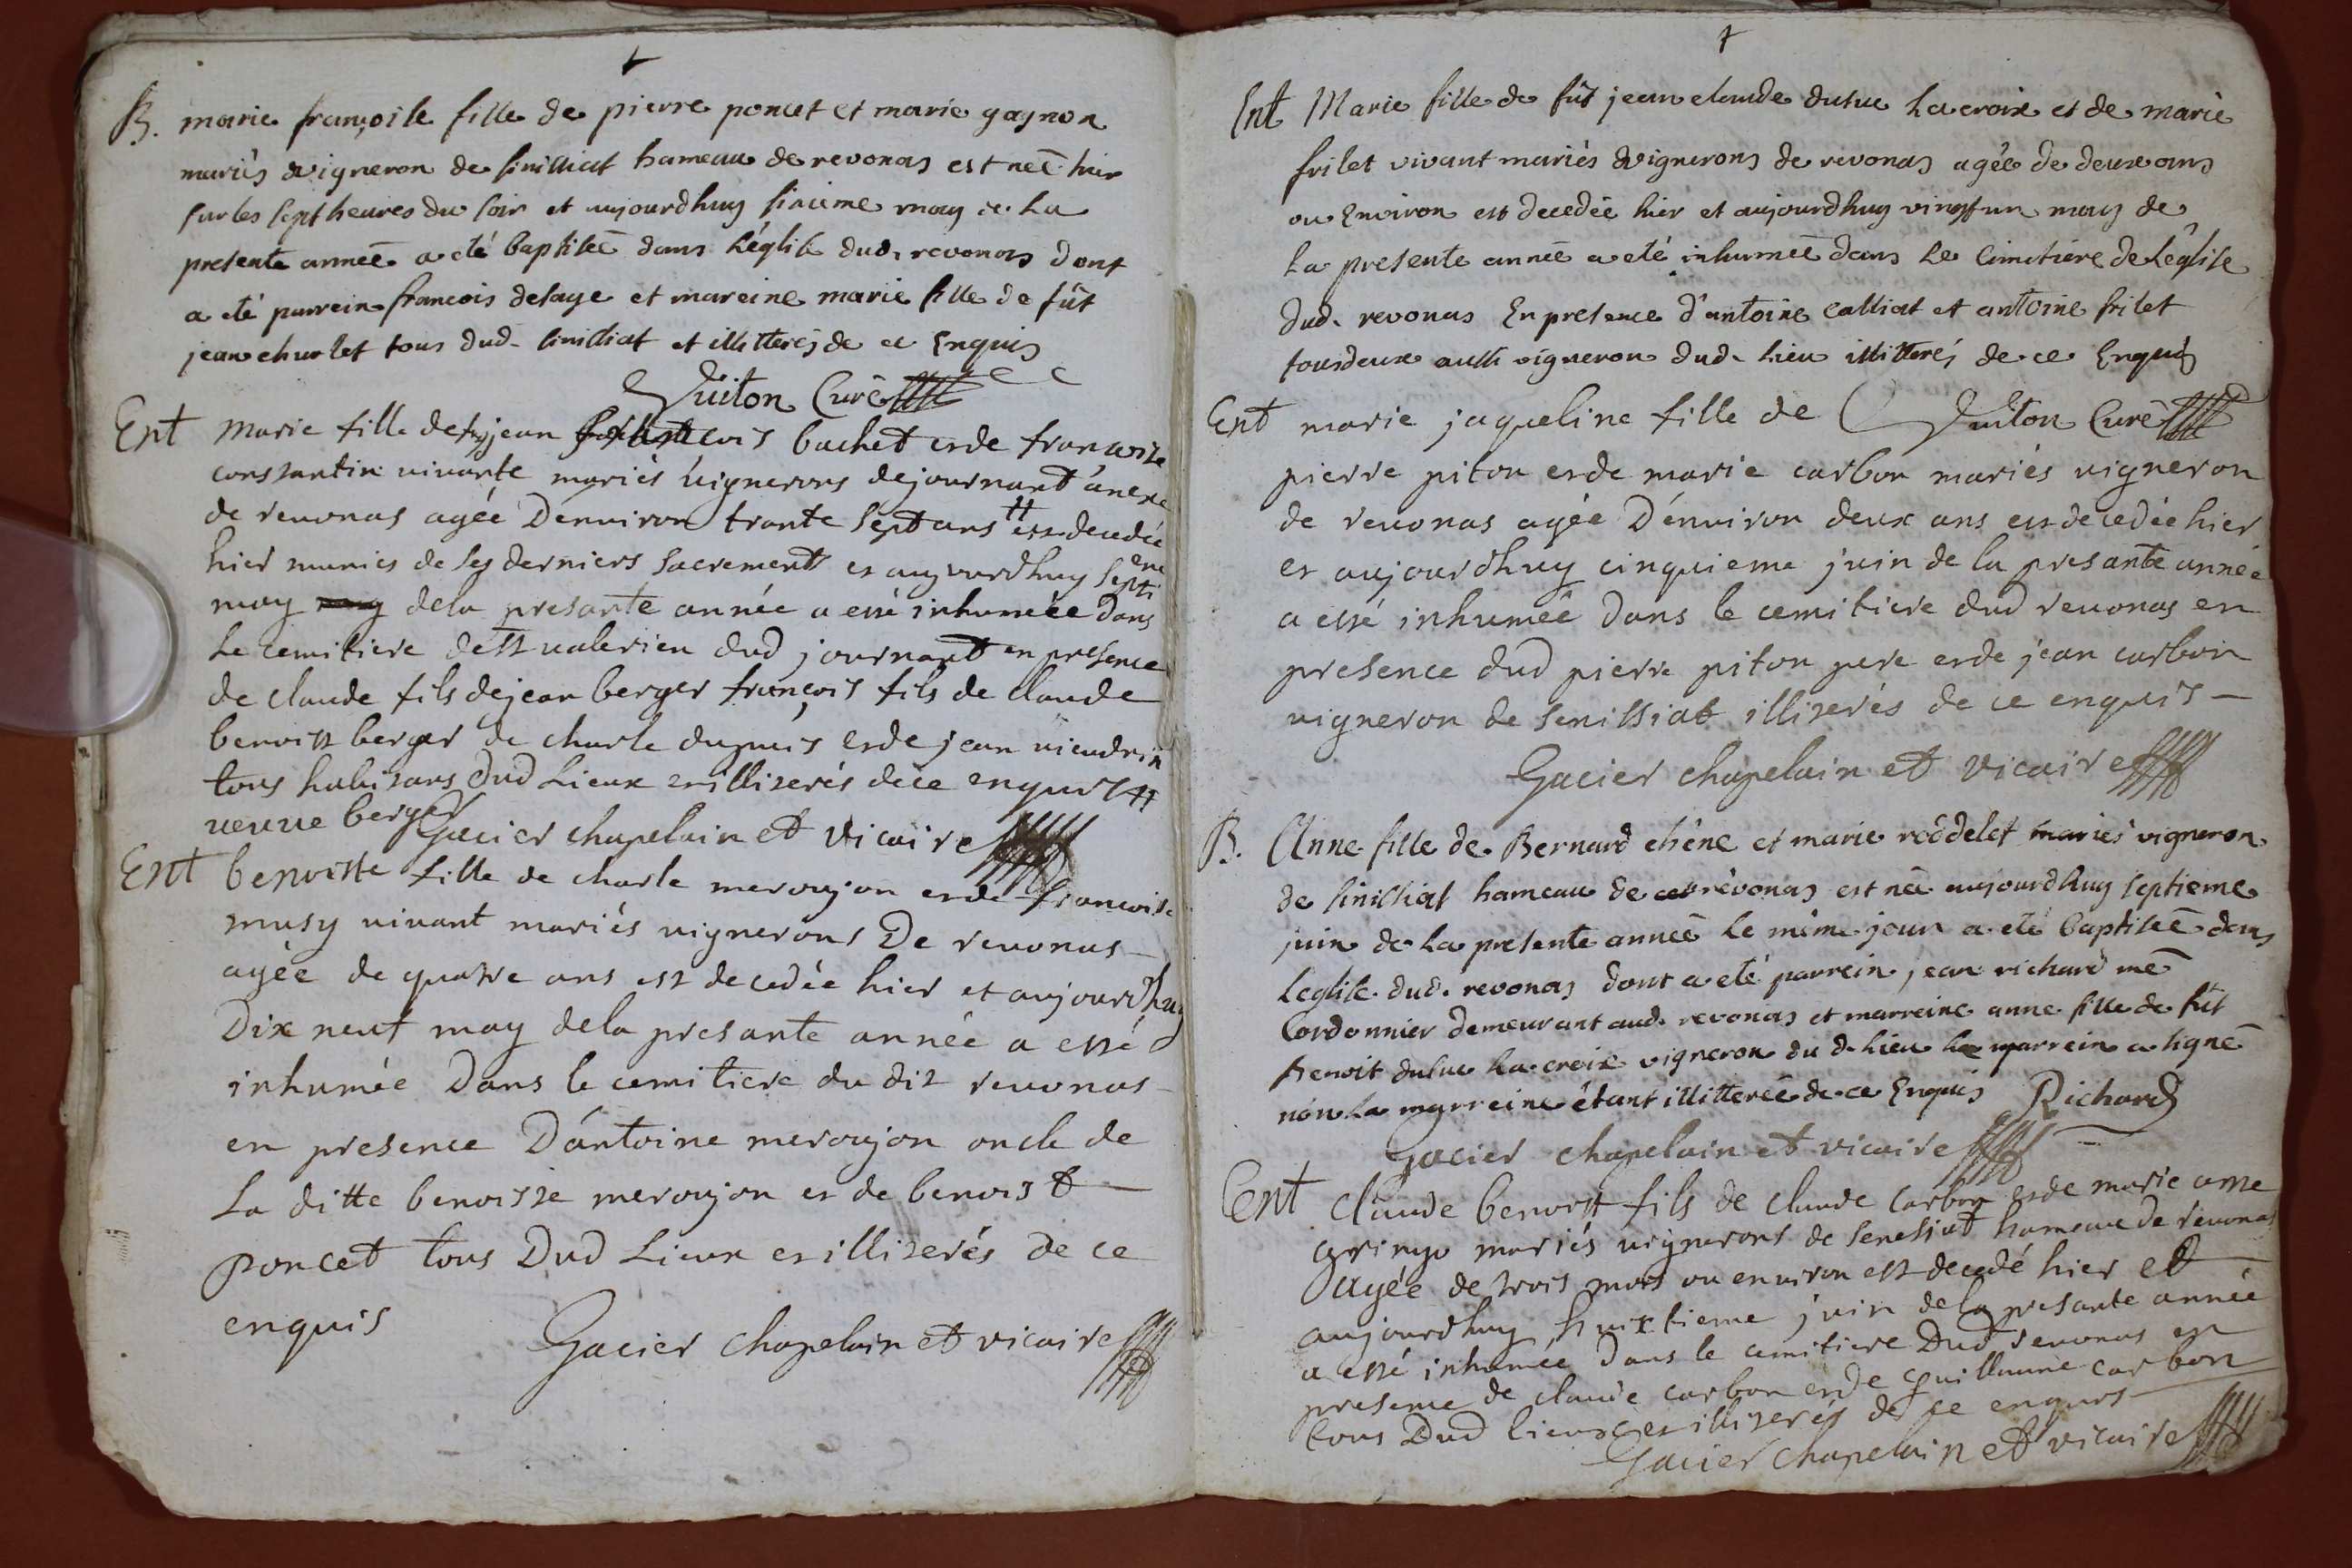 B. marie françoise fille de pierre poncet et marie gagnon
mariés vigneron de sinissiat hameau de revonas est neé hier
sur les sept heures du soir et aujourdhuy sixieme may de la
presente anneé a eté baptiseé dans l'église dud. revonas dont
a eté parrein francois delaye et mareine marie fille de fût
jean churlet tous dud. sinissiat et illitterés de ce Enquis
Guiton Curé
Ent marie fille de jean francois buchet erde francoise
constantin vivante mariés vignerons dejournant anexe
de revonas agéé D'environ trante sept ans # est decedéé
hier munies de ses derniers sacrement et aujourdhuy septieme
may dela presante année a essé inhumée dans
Le cemitiere de st valerien dud journant en presence
de claude fils dejean berger françois fils de claude
benoist berger de charle dupuis erde jean vieudrin
tous habitans dud Lieux erillizerés dece enquis #
veuve berger
Gacier chapelain et vicaire
Ent benoiste fille de charle meroujon erde francoise
musy vivant mariés vignerons De revonas
agée de quatre ans est decedée hier et aujourdhuy
Dix neuf may dela presante année a essé
inhumée Dans le cemitiere du dit revonas
en presence D'antoine meroujon oncle de
La ditte benoisse meroujon er de benoist
poncet tous Dud Lieux erillizerés de ce
enquis
Gacier chapelain et vicaire
Ent Marie fille de fût jean claude dutuc Lacroix et de marie
frilet vivant mariés vignerons de revonas agéé de deux ans
ou Environ est decedéé hier et aujourdhuy vingt un may de
La presente anneé a eté inhumeé dans Le Cimitiére de Léglise
dud. revonas En presence d'antoine calliat et antoine frilet
tous deux aussi vigneron dud. Lieu illitterés de ce Enquis
Guiton Curé
Ent marie jaqueline fille de
pierre piton erde marie carbon mariés vigneron
de revonas agéé D'environ deux ans est decedée hier
er aujourdhuy cinquieme juin de la presante année
a essé inhumeé Dans le cemitiere dud revonas en
presence dud pierre piton pere erde jean carbon
vigneron de senissiat illizerés de ce enquis
Gacier chapelain et vicaire
B. Anne fille de Bernard chéne et marie réddelet mariés vigneron
de sinissiat hameau de revonas est neé aujourdhuy septieme
juin de La presente anneé Le méme jour a eté baptiseé dans
Leglise dud. revonas dont a eté parrein jean richard mé
Cordonnier demeurant aud. revonas et marreine anne fille de fût
Benoit dutuc La croix vigneron du d. Lieu Le parrein a signé
non La marreine étant illittereé de ce Enquis Richard
Gacier chapelain et vicaire
Ent Claude benoist fils de claude carbon erde marie anne
gringo mariés vignerons de senessiat hameau de revonas
agéé de trois mois ou environ est decedé hier et
aujourdhuy huixtieme juin dela presante année
a essé inhumée Dans le cemitiere Dud revonas en
presence de claude carbon erde guillaume carbon
tous Dud lieux er illizerés de ce enquis
Gacier chapelain et vicaire